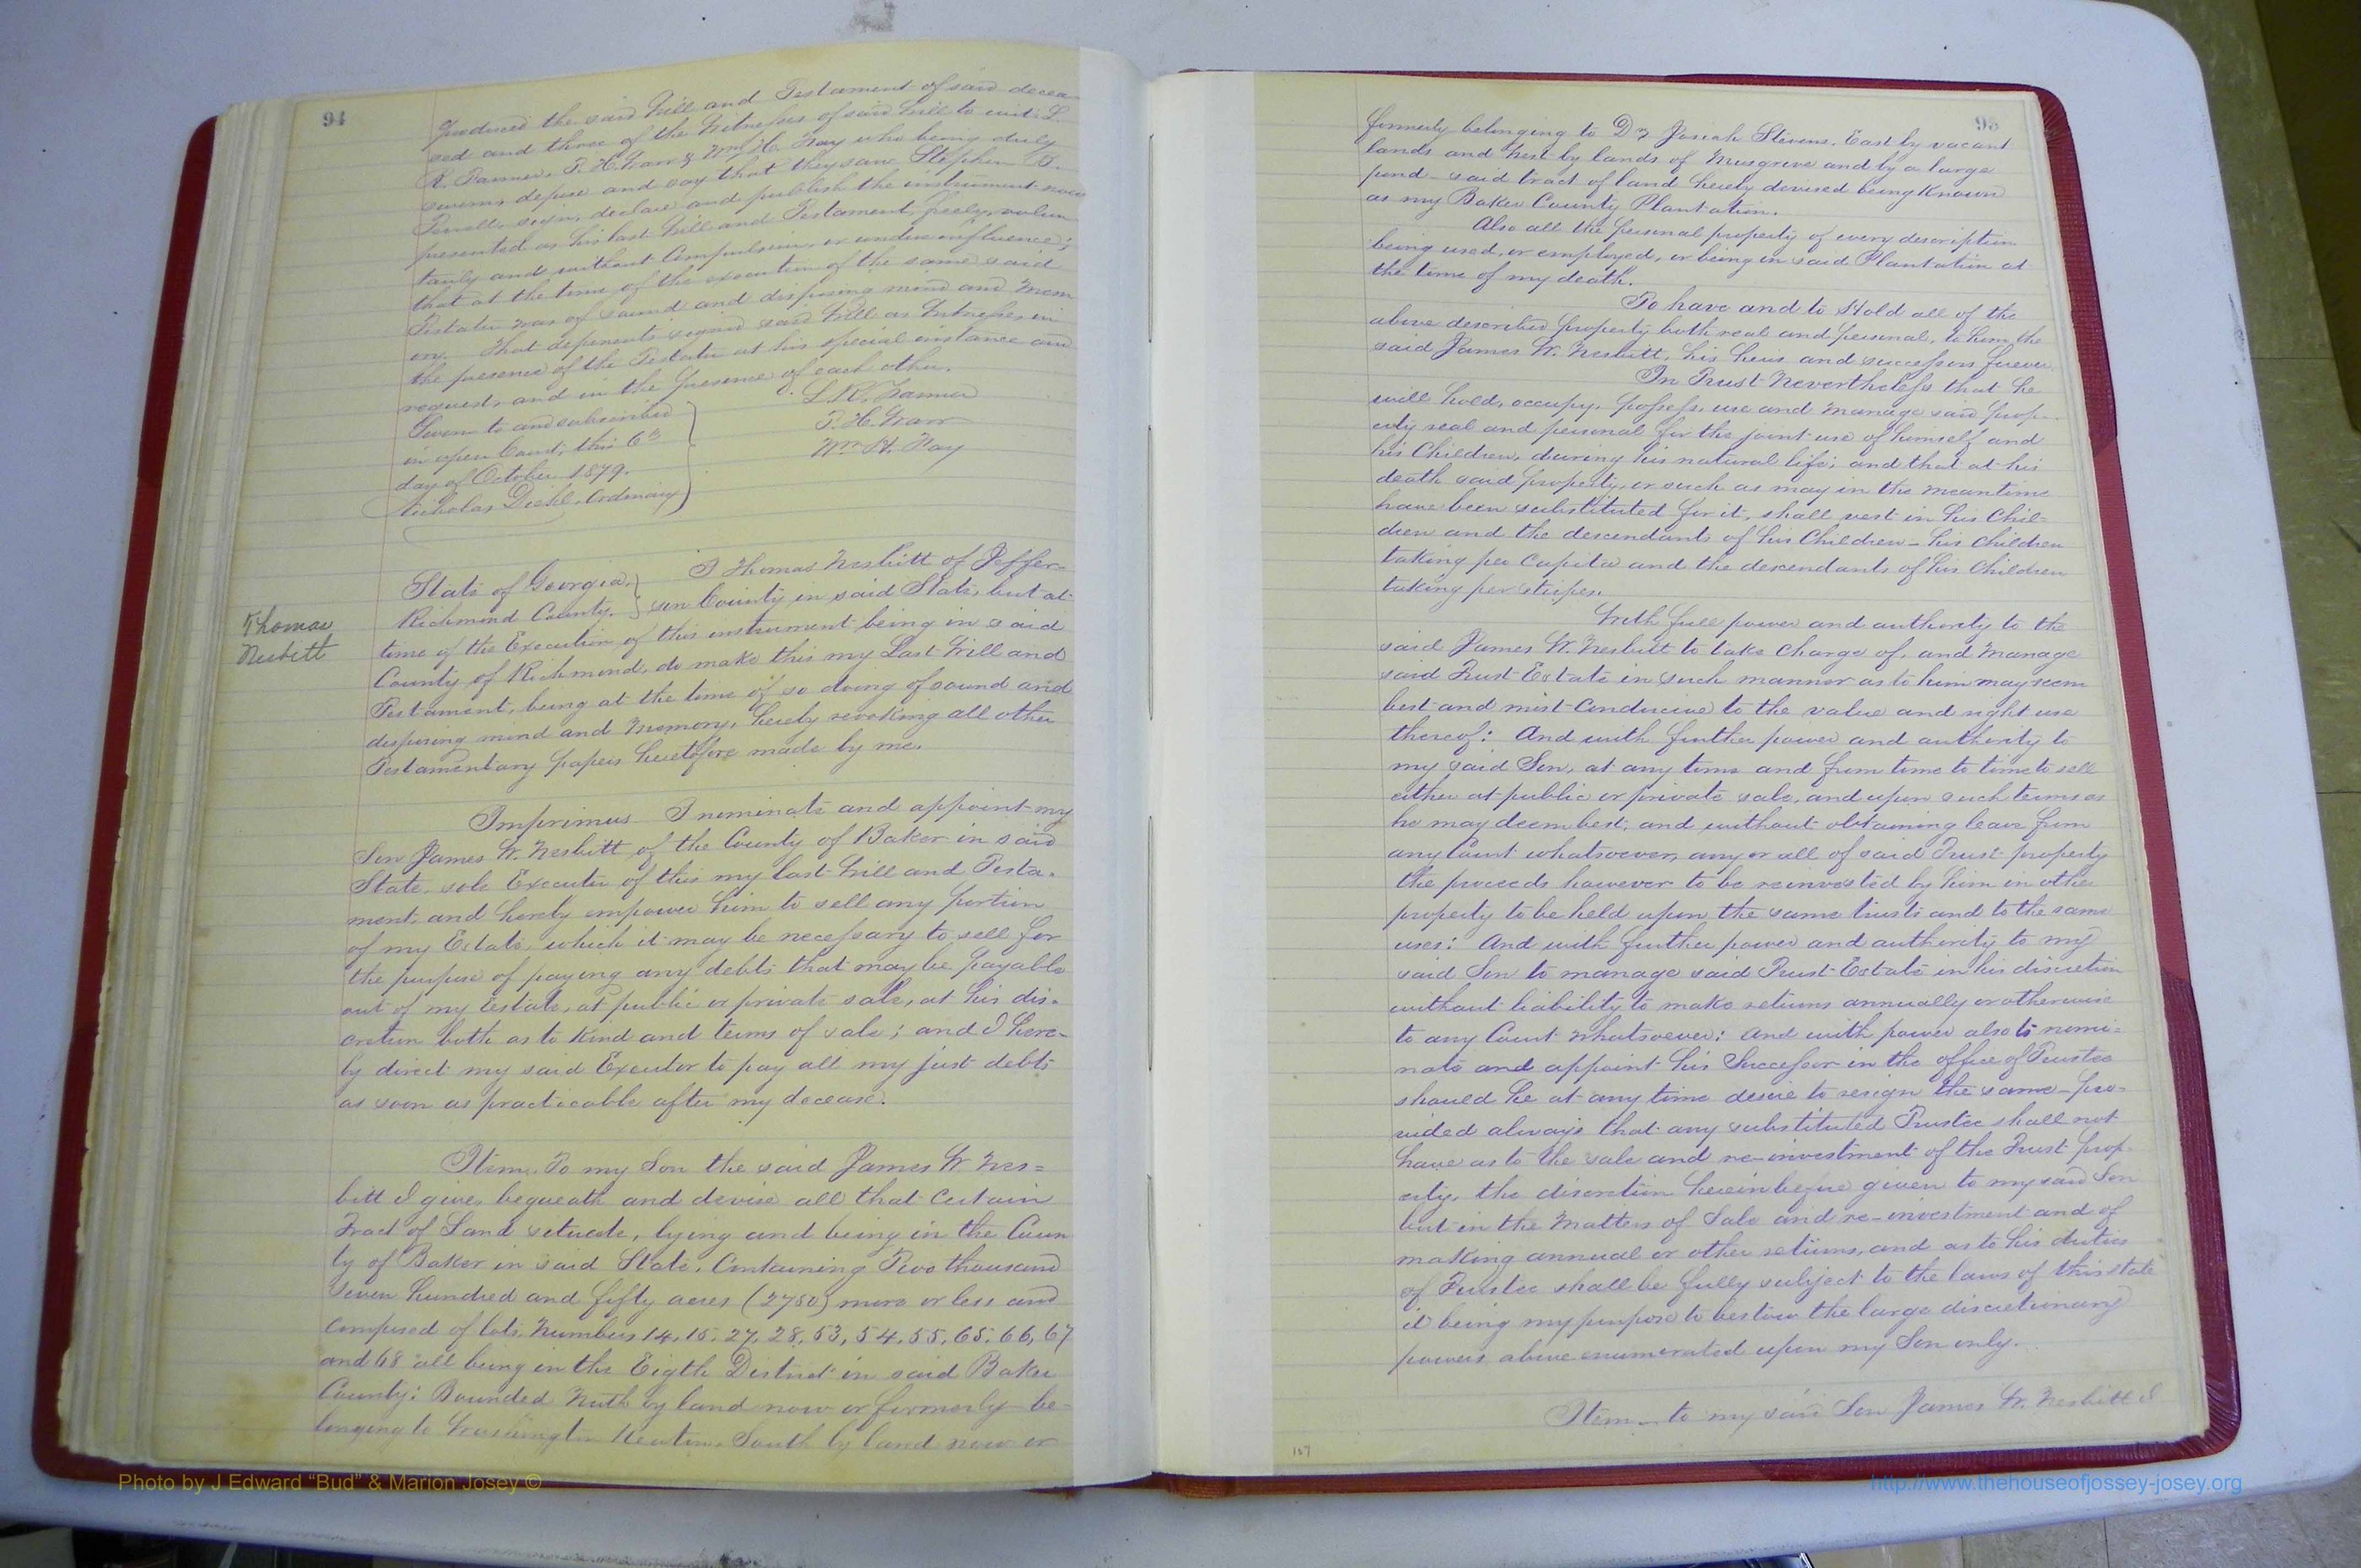 94
produced the said Will and Testament of said decea
sed and three of the Witnesses of said Will to wit: L.
R. Farmer, T. H. & Wm H. Fay who being duly
sworn, depose and say that they saw Stephen
sign, declare and publish the instrument now
presented as his last Will and Testament, freely, volun
tarily and without Compulsion, or undue influence;
that at the time of the execution of the same said
Testator was of sound and disposing mind and mem
ory. That deponents signed said Will as Witnesses in
the presence of the Testator at his special instance and
request, and in the presence of each other.
Sworn to and subscribed
in open Court, this 6th
day of October 1879.
Nicholas Diehl, Ordinary
L. R. Farmer
T. H.
Wm H. Fay
Thomas
Nesbitt
State of Georgia,
Richmond County.
I Thomas Nesbitt of Jeffer-
son County in said State, but at
time of the Execution of this instrument being in said
County of Richmond, do make this my Last Will and
Testament, being at the time of so doing of sound and
disposing mind and memory, hereby revoking all other
Testamentary papers heretofore made by me.
Imprimus I nominate and appoint my
Son James W. Nesbitt of the County of Baker in said
State, sole Executor of this my last Will and Testa-
ment, and hereby empower him to sell any portion
of my Estate which it may be necessary to sell for
the purpose of paying any debts that may be payable
out of my Estate, at public or private sale, at his dis-
cretion both as to Kind and terms of sale; and I here-
by direct my said Executor to pay all my just debts
as soon as practicable after my decease.
Item. To my Son the said James W Nes=
bitt I give, bequeath and devise all that Certain
Tract of Land situate, lying and being in the Coun
ty of Baker in said State, Containing Two thousand
Seven hundred and fifty acres (2750) more or less and
Composed of lots, Numbers 14, 15, 27, 28, 53, 54, 55, 65, 66, 67
and 68 all being in the Eigth District in said Baker
County: Bounded North by land now or formerly be-
longing to Washington Keaton, South by land now or
95
formerly belonging to Dr Josiah Stevens, East by vacant
lands and West by lands of Musgrove and by a large
pond - said tract of land hereby devised being Known
as my Baker County Plantation.
Also all the personal property of every description
being used, or employed, or being in said Plantation at
the time of my death.
To have and to Hold all of the
above described property both real and personal, to him, the
said James W. Nesbitt, his heirs and successors forever.
In Trust Nevertheless that he
will hold, occupy, possess, use and manage said prop-
erty real and personal for the joint use of himself and
his Children, during his natural life; and that at his
death said property, or such as may in the meantime
have been substituted for it, shall vest in his Chil-
dren and the descendants of his Children - his Children
taking per Capita and the descendants of his Children
taking per stirpes.
With full power and authority to the
said James W. Nesbitt to take Charge of, and Manage
said Trust Estate in such manner as to him may seem
best and most Conducive to the value and right use
thereof: And with further power and authority to
my said Son, at any time and from time to time to sell
either at public or private sale, and upon such terms as
he may deem best, and without obtaining leave from
any Court whatsoever, any or all of said Trust property
the proceeds however to be reinvested by him in other
property to be held upon the same trusts and to the same
uses: And with further power and authority to my
said Son to manage said Trust Estate in his discretion
without liability to make returns annually or otherwise
to any Court whatsoever: And with power also to nomi=
nate and appoint his Successor in the office of Trustee
should he at any time desire to resign the same - pro-
vided always that any substituted Trustee shall not
have as to the sale and re-investment of the Trust prop-
erty, the discretion hereinbefore given to my said Son
but in the Matters of Sale and re-investment and of
making annual or other returns, and as to his duties
of Trustee shall be fully subject to the laws of this State
it being my purpose to bestow the large discretionary
powers above enumerated upon my Son only.
Item - to my said Son James W. Nesbitt I
107
Photo by J Edward “Bud” & Marion Josey ©
http://www.thehouseofjossey-josey.org